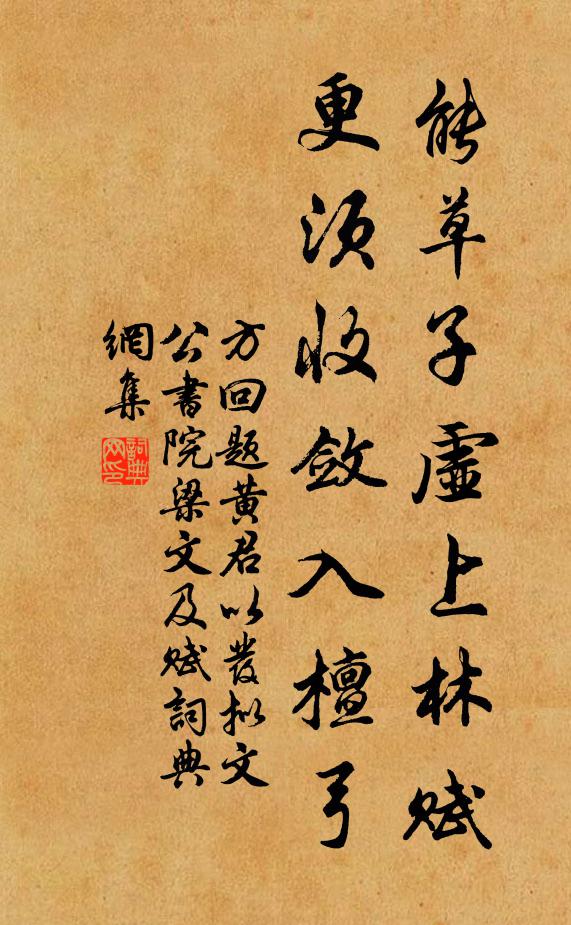 能草子虛上林賦
更須收斂入檀弓
方回題黃君以發擬文
公書院梁文及賦詞典
網集
詞典網印